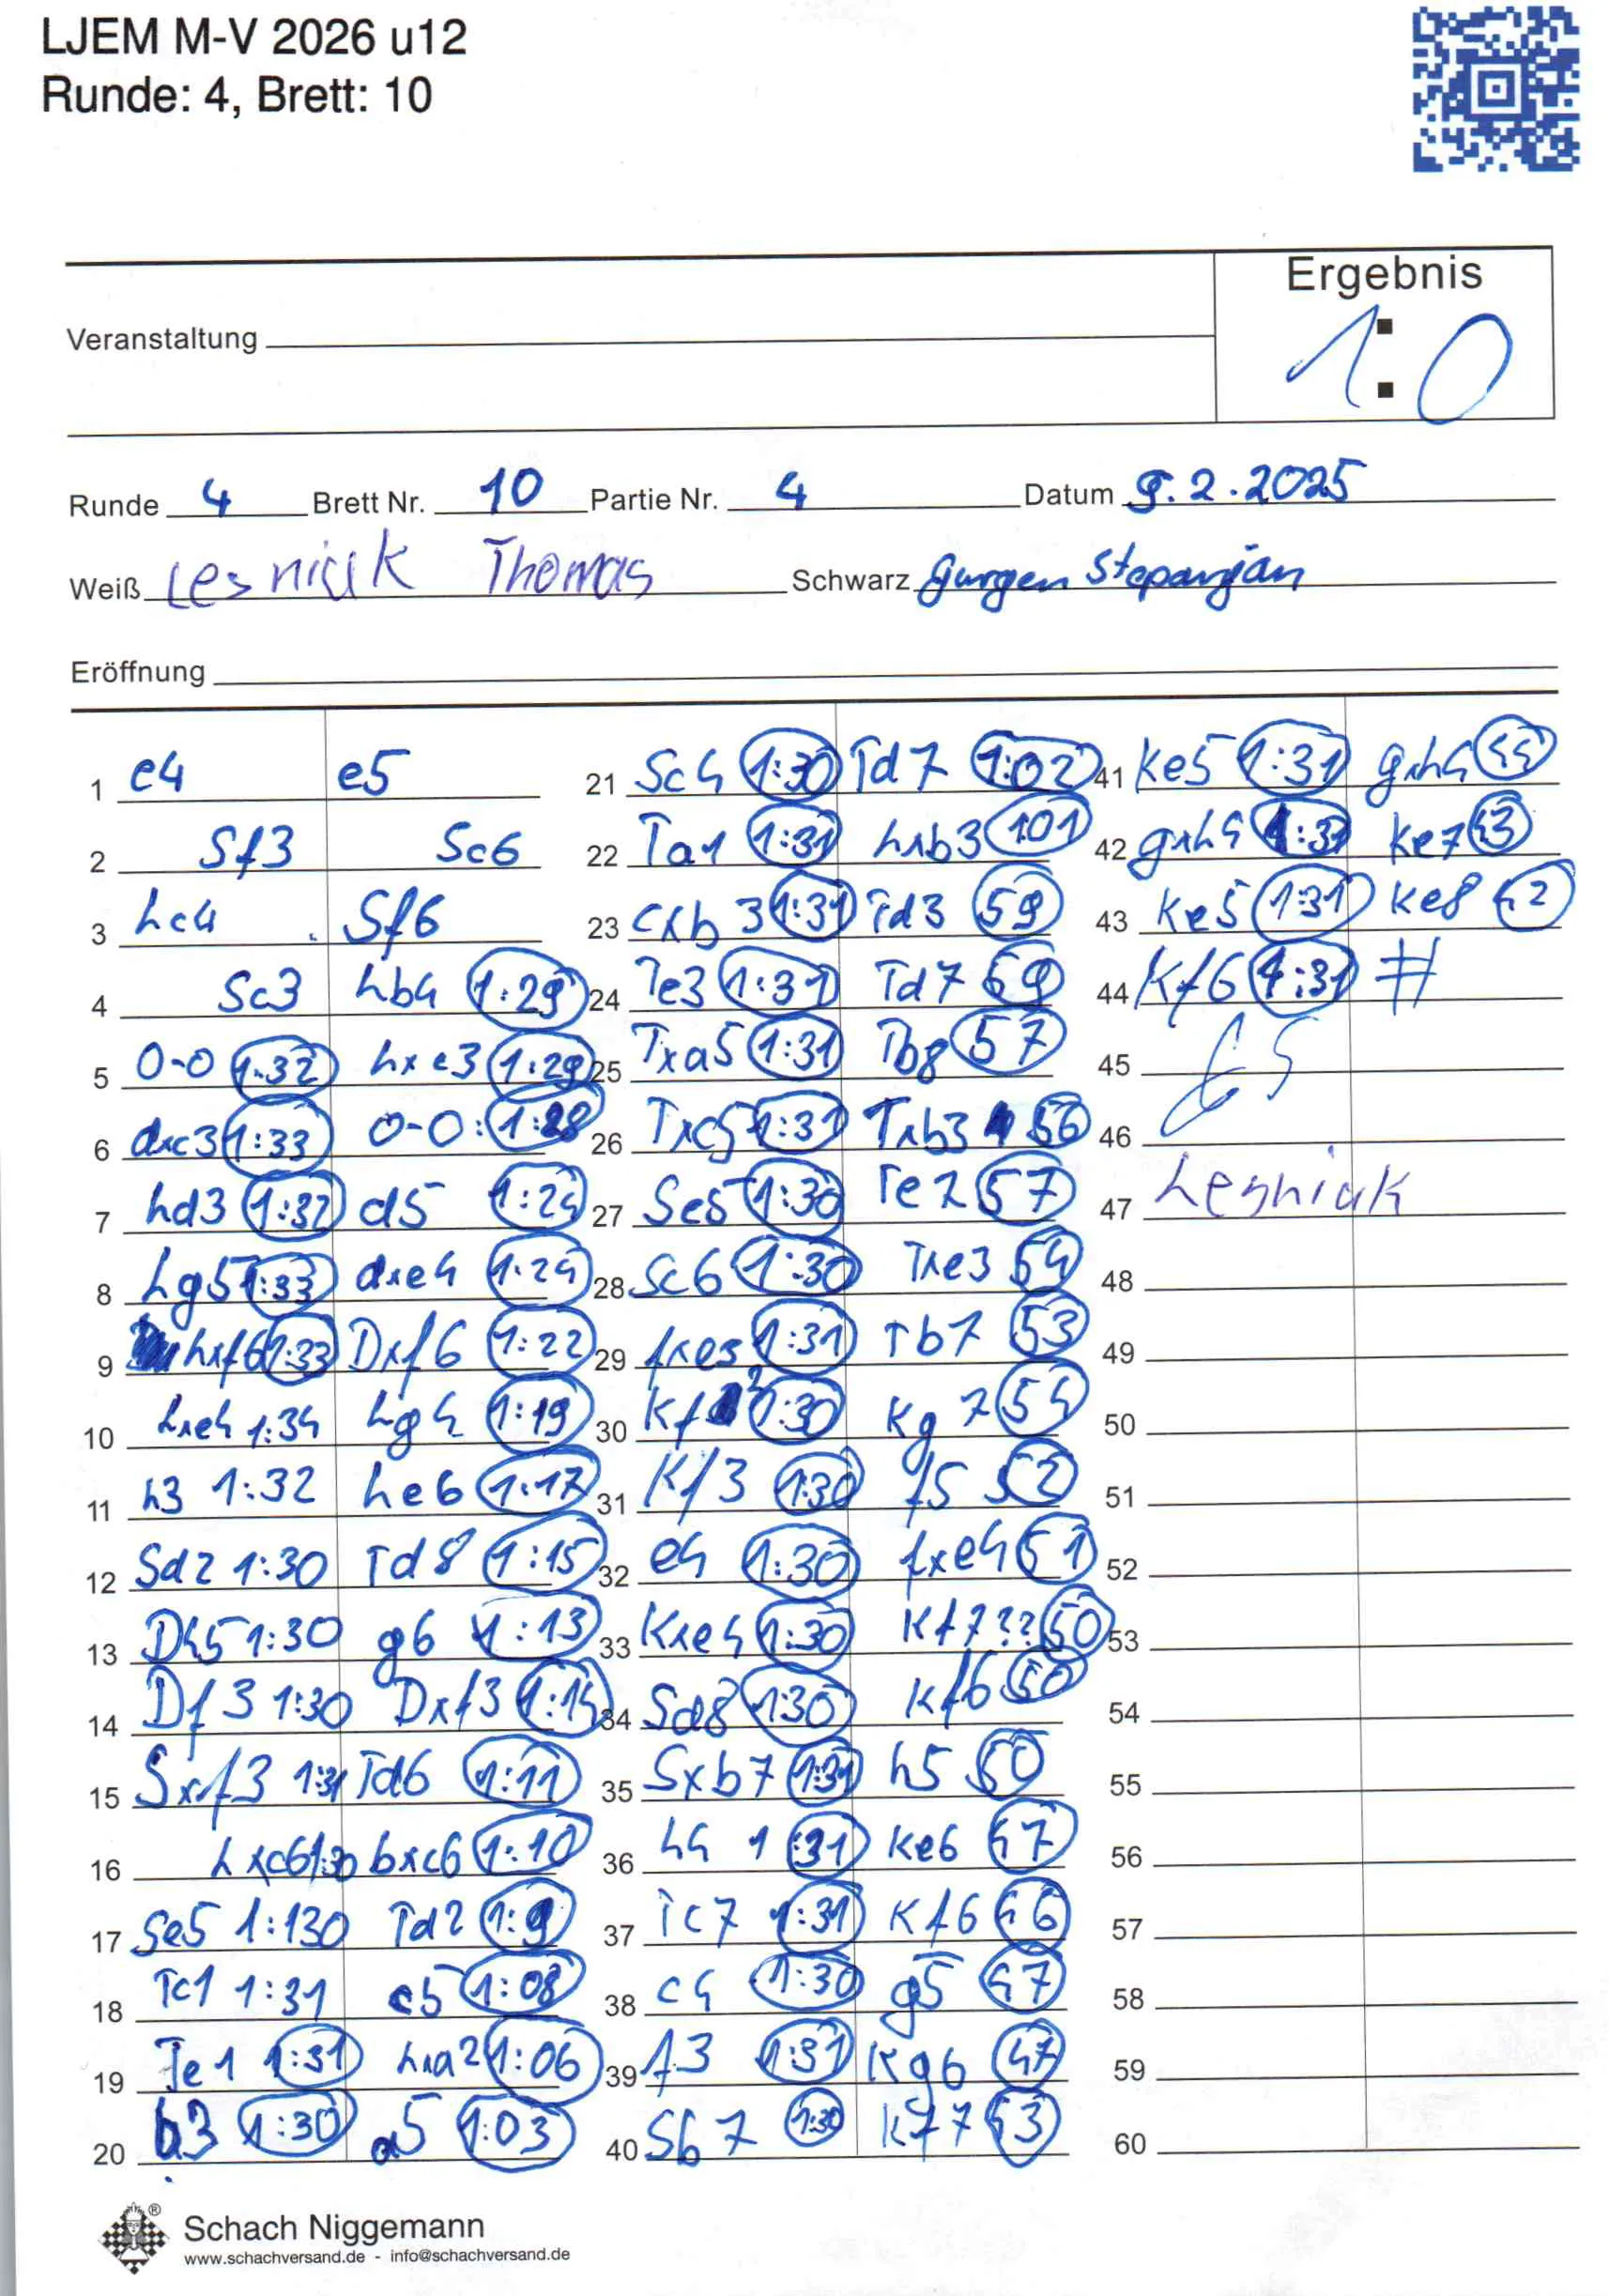 LJEM M-V 2026 u12
Runde: 4, Brett: 10
Ergebnis
1:0
Veranstaltung
Runde 4 Brett Nr. 10 Partie Nr. 4 Datum 9.2.2025
Weiß Lesniak Thomas Schwarz Gurgen Stepanjan
Eröffnung
1 e4 e5
2 Sf3 Sc6
3 Lc4 Sf6
4 Sc3 Lb4 1:29
5 0-0 1:32 Lxc3 1:29
6 dxc3 1:33 0-0 1:28
7 Ld3 1:32 d5 1:24
8 Lg5 1:33 dxe4 1:24
9 Lxf6 1:33 Dxf6 1:22
10 Lxe4 1:34 Lg4 1:19
11 h3 1:32 Le6 1:17
12 Sd2 1:30 Td8 1:15
13 Dh5 1:30 g6 1:13
14 Df3 1:30 Dxf3 1:14
15 Sxf3 1:31 Td6 1:11
16 Lxc6 1:30 bxc6 1:10
17 Se5 1:130 Td2 1:9
18 Tc1 1:31 c5 1:08
19 Te1 1:31 Lxa2 1:06
20 b3 1:30 a5 1:03
21 Sc4 1:30 Td7 1:02
22 Ta1 1:31 Lxb3 101
23 cxb3 1:31 Td3 59
24 Te3 1:31 Td7 59
25 Txa5 1:31 Tb8 57
26 Txc5 1:31 Txb3 56
27 Se5 1:30 Te7 57
28 Sc6 1:30 Txe3 54
29 fxe3 1:31 Tb7 53
30 Kf2 1:30 Kg7 54
31 Kf3 1:30 f5 52
32 e4 1:30 fxe4 51
33 Kxe4 1:30 Kf7?? 50
34 Sd8 1:30 Kf6 50
35 Sxb7 1:31 h5 50
36 h4 1:31 Ke6 47
37 Tc7 1:31 Kf6 46
38 c4 1:30 g5 47
39 f3 1:31 Kg6 47
40 Sb7 1:30 Kf7 53
41 Ke5 1:31 gxh4 44
42 gxh4 1:31 Ke7 43
43 Ke5 1:31 Ke8 42
44 Kf6 1:31 #
45 GS
46
47 Lesniak
48
49
50
51
52
53
54
55
56
57
58
59
60
Schach Niggemann
www.schachversand.de - info@schachversand.de